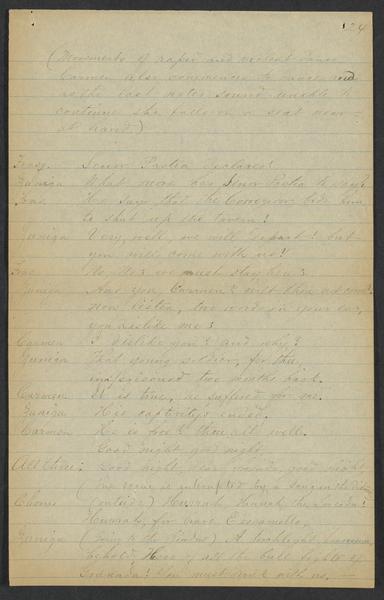 24
(Movements of rapid and violent dance
Carmen also commences to dance and
as the last notes sound unable to
continue she falls on a seat near
at hand)
Frasq. Senor Pastia declares!
Zuniga What more has Senor Pastia to say?
Fras. He says that the Corregidor bids him
to shut up the tavern!
Zuniga Very well, we will depart! but
you will come with us!
Fras No, no we must stay here!
Zuniga And you, Carmen? wilt thou not come?
Now listen, two words in your ear,
you dislike me!
Carmen I dislike you? and why?
Zuniga That young soldier, for thee,
imprisoned two months back.
Carmen It is true, he suffered for me.
Zuniga His captivity's ended.
Carmen He is free? then all's well.
Good night good night,
All three: Good night, dear friends, good night,
(The scene is interrupted by a song in the
Chorus (outside) Hurrah, Hurrah, the Toreador!
Hurrah, for brave Escamillo,
Zuniga (Going to the window) A torchlight
behold, Hero of all the bull fights of
Granada! You must drink with us, —